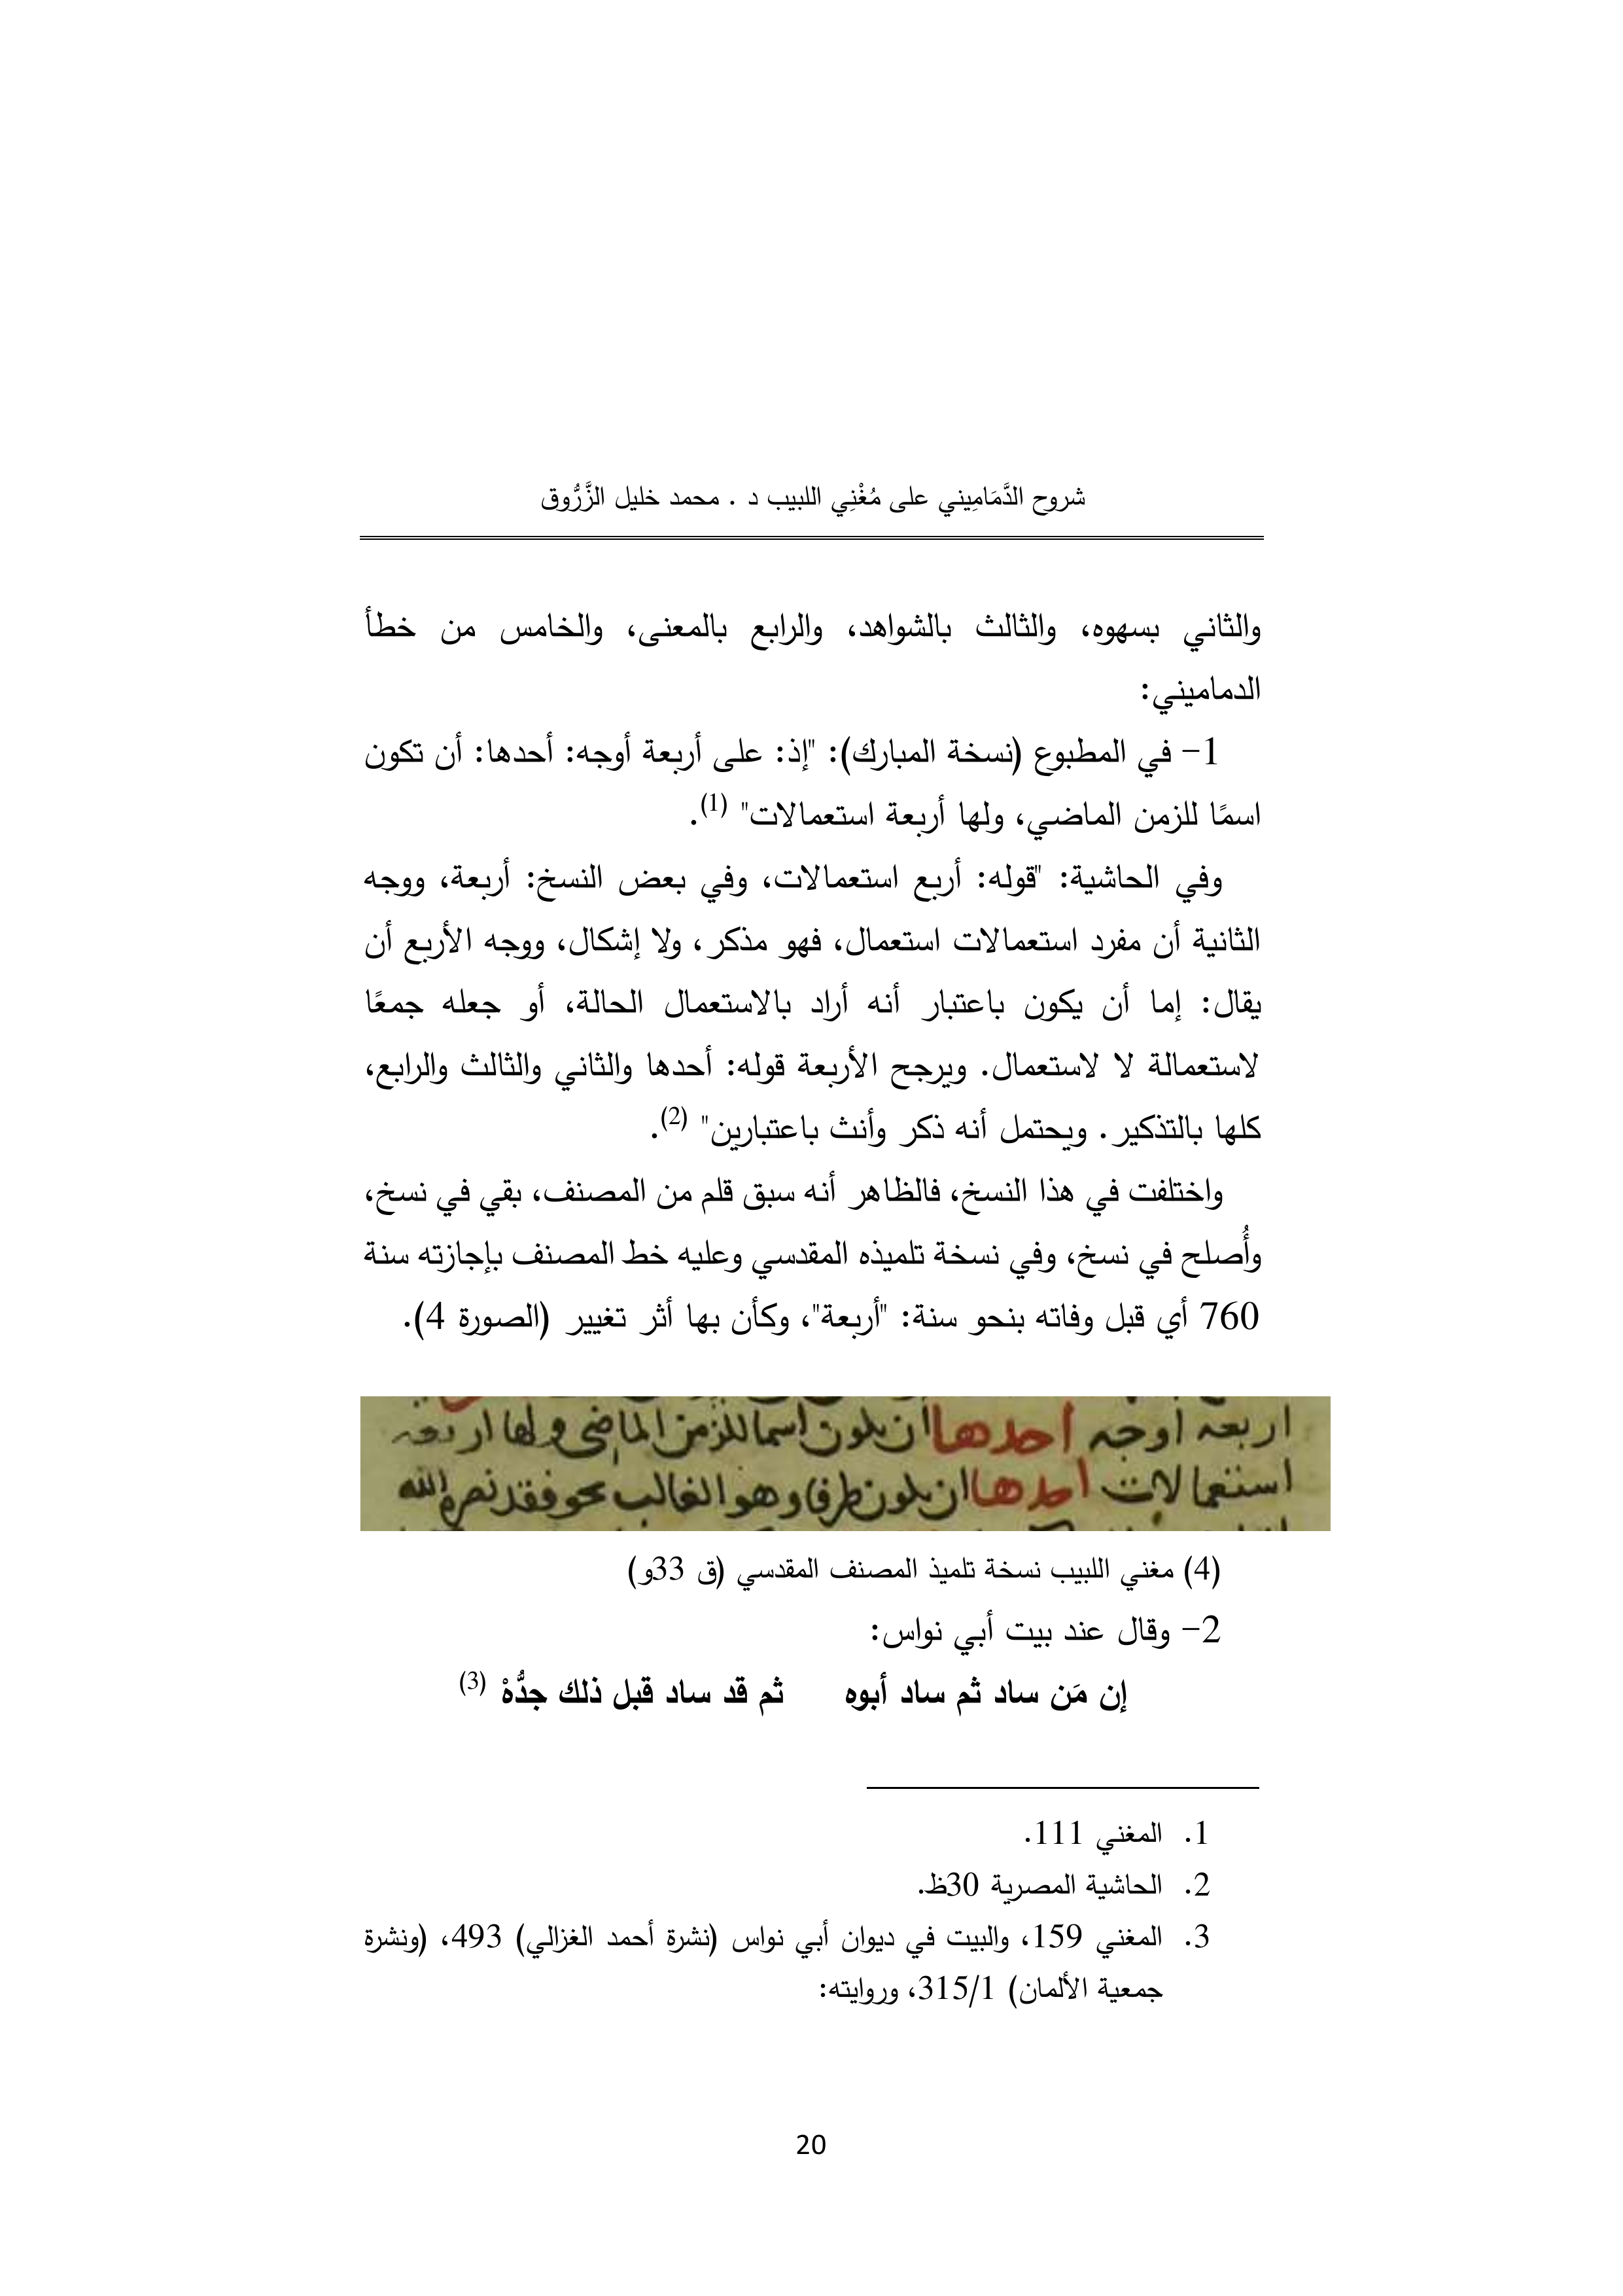 شروح الدَّمَامِيني على مُغْنِي اللبيب د . محمد خليل الزَّرُّوق
والثاني بسهوه، والثالث بالشواهد، والرابع بالمعنى، والخامس من خطأ
الدماميني:
1- في المطبوع (نسخة المبارك): "إذ: على أربعة أوجه: أحدها: أن تكون
اسمًا للزمن الماضي، ولها أربعة استعمالات" (1).
وفي الحاشية: "قوله: أربع استعمالات، وفي بعض النسخ: أربعة، ووجه
الثانية أن مفرد استعمالات استعمال، فهو مذكر، ولا إشكال، ووجه الأربع أن
يقال: إما أن يكون باعتبار أنه أراد بالاستعمال الحالة، أو جعله جمعًا
لاستعمالة لا لاستعمال. ويرجح الأربعة قوله: أحدها والثاني والثالث والرابع،
كلها بالتذكير. ويحتمل أنه ذكر وأنث باعتبارين" (2).
واختلفت في هذا النسخ، فالظاهر أنه سبق قلم من المصنف، بقي في نسخ،
وأُصلح في نسخ، وفي نسخة تلميذه المقدسي وعليه خط المصنف بإجازته سنة
760 أي قبل وفاته بنحو سنة: "أربعة"، وكأن بها أثر تغيير (الصورة 4).
اربعه اوجه احدها ان يكون اسما للزمن الماضي ولها اربعه
استعمالات احدها ان يكون ظرفا وهو الغالب نحو فقد نصره الله
(4) مغني اللبيب نسخة تلميذ المصنف المقدسي (ق 33و)
2- وقال عند بيت أبي نواس:
إن مَن ساد ثم ساد أبوه ثم قد ساد قبل ذلك جدُّهْ (3)
1. المغني 111.
2. الحاشية المصرية 30ظ.
3. المغني 159، والبيت في ديوان أبي نواس (نشرة أحمد الغزالي) 493، (ونشرة
جمعية الألمان) 315/1، وروايته:
20